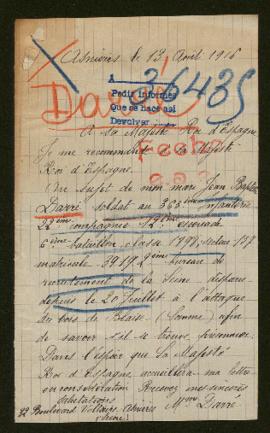 Asnières le 13 Août 1916
A
36435
Pedir informes
Que se hace así
Devolver
Darré
A sa Majesté Roi d'Espagne
Je me recommande à sa Majesté
Roi d'Espagne.
Au sujet de mon mari Jean Baptiste
Darré soldat au 363 ème infanterie
22 ème compagnie 12 ème escouade
6 ème bataillon classe 1898
matricule 3919 9 ème bureau de
recrutement de la Seine disparu
depuis le 20 Juillet à l'attaque
du bois de (Somme) afin
de savoir s'il se trouve prisonnier
Dans l'espoir que Sa Majesté
Roi d'Espagne accueillera ma lettre
en considération Recevez mes sincères
salutations
Mme Darré
Boulevard Voltaire Asnières
(Seine)